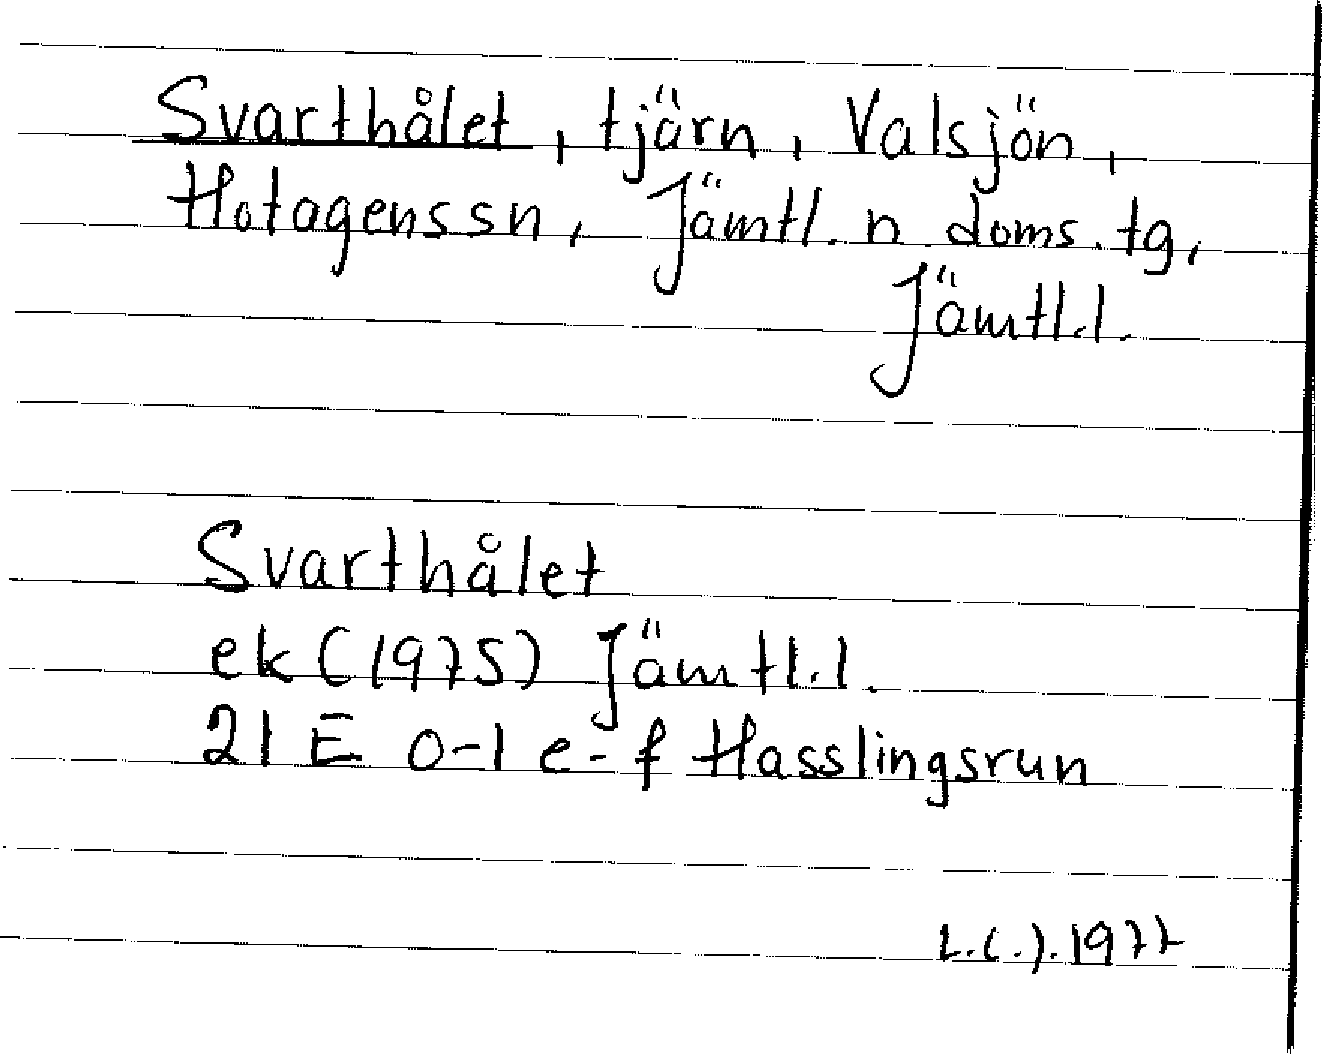 Svarthålet, tjärn, Valsjön,
Hotagenssn, Jämtl. n. doms. tg,
Jämtl.l.
Svarthålet
ek (1975) Jämtl.l.
21 E 0-1 e-f Hasslingsrun
1977